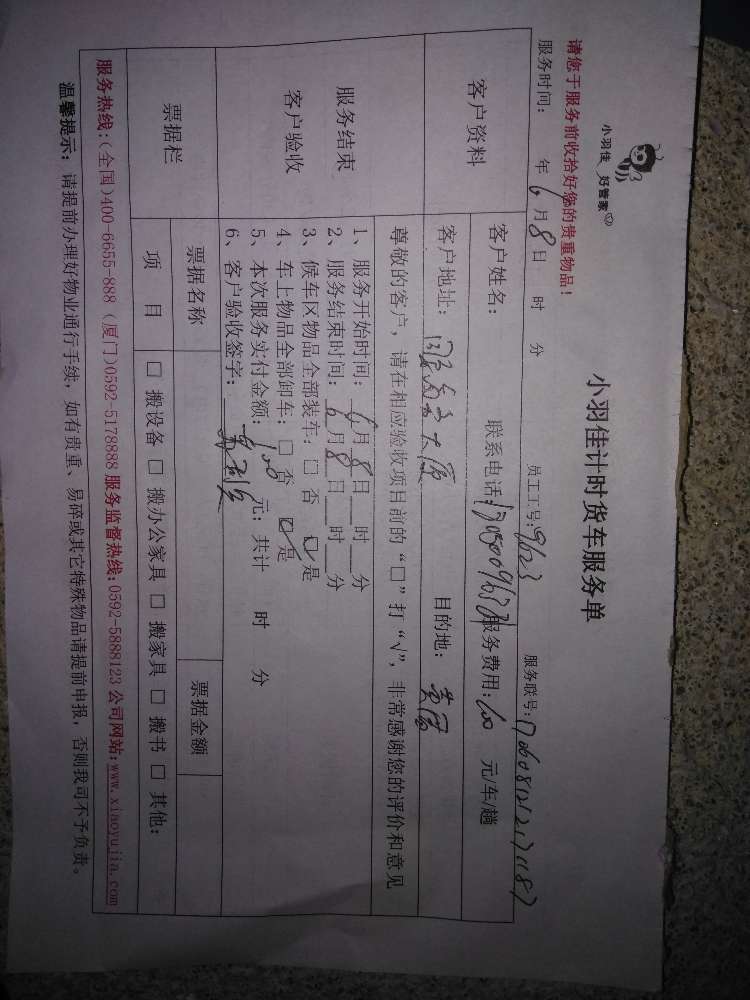 小羽佳 好管家
小羽佳计时货车服务单
请您于服务前收拾好您的贵重物品！
服务时间： 年 6 月 8 日 时 分 员工工号：9623 服务联号：
客户资料
客户姓名： 联系电话： 服务费用：100 元/车/趟
客户地址： 目的地：
服务结束
客户验收
尊敬的客户，请在相应验收项目前的“□”打“√”，非常感谢您的评价和意见
1、服务开始时间：6月8日 时 分
2、服务结束时间：6月8日 时 分
3、候车区物品全部装车：□ 否 □ 是
4、车上物品全部卸车：□ 否 □ 是
5、本次服务实付金额：100 元；共计 时 分
6、客户验收签字：
票据栏
票据名称 票据金额
项 目 □ 搬设备 □ 搬办公家具 □ 搬家具 □ 搬书 □ 其他：
服务热线：(全国)400-6655-888 (厦门)0592-5178888 服务监督热线：0592-5888123 公司网站：www.xiaoyujia.com
温馨提示：请提前办理好物业通行手续，如有贵重、易碎或其它特殊物品请提前申报，否则我司不予负责。